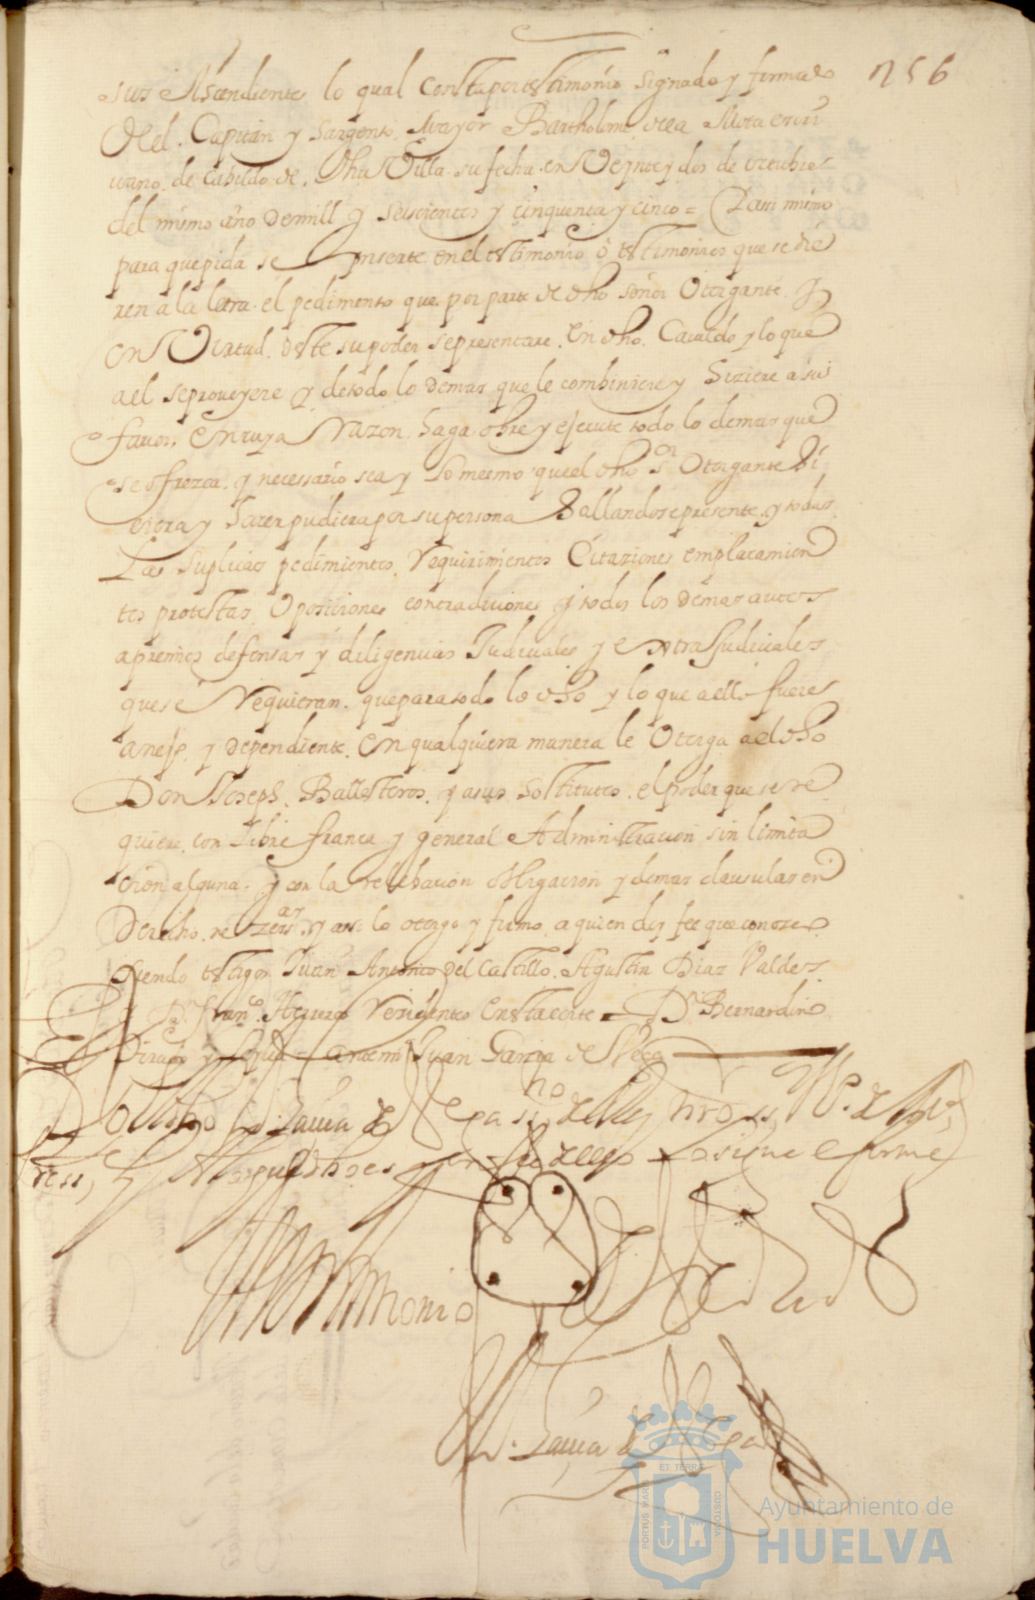 256
sus Asçendiente lo qual Consta por testimonio signado y firmado
del Capitan y Sargento Mayor Bartholome de la Mota escri
uano de Cabildo de dha Villa su fecha en Veynte y dos de octubre
del mismo año de mill y seiscientos y cinquenta y cinco = Y assi mismo
para que pida se ynserte en el testimonio ò testimonios que se die
ren a la letra el pedimento que por parte de dho señor Otorgante Y
en Virtud deste su poder se presentare en dho Cauildo y lo que
a el se proueyere y de todo lo demas que le combiniere y hiziere a su
fauor, en cuya Razon haga obre y execute todo lo demas que
se ofrezca y necessario sea y lo mesmo que el dho sor Otorgante hi
ciera y hazer pudiera por su persona hallandose presente y todas
Las suplicas pedimientos Requirimientos Citaziones emplacamien
tos protestas Oposiciones contradiciones y todos los demas autos
apremios defensas y diligencias Judiciales y extraJudiciales
que se Requieran que para todo lo dho y lo que a ello fuere
anejo y dependiente en qualquiera manera le Otorga a el dho
Don Joseph Ballesteros y a sus sostitutos el poder que se re
quiere con libre franca y general Administracion sin limita
cion alguna y con la relebacion obligacion y demas clausulas en
Derecho nezesarias y assi lo otorgo y firmo a quien doy fee que conozco
siendo testigos Juan Antonio del Castillo Agustin Diaz Valdes
y Dn Franco Herrera Vezinos y Estantes en esta corte = Dn Bernardino
= ante mi Juan Garzia de Vega
Garcia de Vega
signe e firme
testimonio de Verdad
Garcia de Vega
PORTUS MARIS ET TERRÆ CUSTODIA
Ayuntamiento de
HUELVA